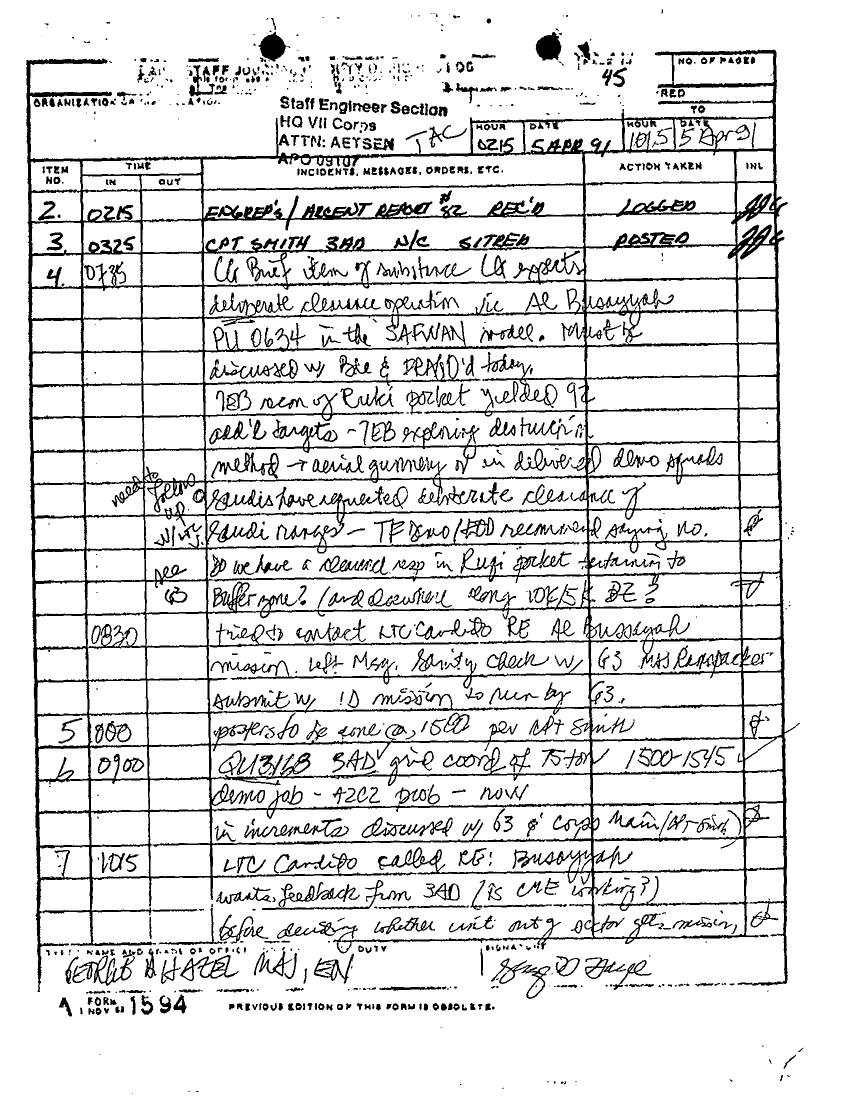 STAFF JOURNAL
45
NO. OF PAGES
Staff Engineer Section
HQ VII Corps
ATTN: AETSEN TAC
APO 09107
TO
HOUR DATE HOUR DATE
0215 5 APR 91 1015 5 Apr 91
ITEM NO. TIME IN OUT INCIDENTS, MESSAGES, ORDERS, ETC. ACTION TAKEN INL
2. 0215 ENGREP's / ARCENT REPORT # 82 REC'D LOGGED
3. 0325 CPT SMITH 3AD N/C SITREP POSTED
4. 0735 CG Brief item of substance CG expects
deliberate clearance operation vic Al Busayyah
PU 0634 in the SAFWAN model. Must be
discussed w/ Bde & today.
7EB recon of Ruki pocket yielded 92
add'l targets - 7EB exploring destruction
method → aerial gunnery or in delivered demo squads
need to follow up w/ LTC
Saudis have requested deliberate clearance of
Saudi ranges - TF Demo/EOD recommend saying no.
see G3
Do we have a clearance resp in Ruqi pocket pertaining to
Buffer zone? (and elsewhere along 10K/5K BZ?
0830 tried to contact LTC Candido RE Al Bussayah
mission. Left Msg. Sanity Check w/ G3 MAJ
submit w/ 1D mission to run by G3.
5 posters to be done ca, 1500 per CPT Smith
6 0900 QU3168 3AD grid coord of 75 ton 1500-1545
demo job - A2C2 prob - now
in increments discussed w/ G3 & Corps Main
7 1015 LTC Candido called RE: Busayyah
wants feedback from 3AD (is CME working?)
before deciding whether unit out of sector gets mission,
TYPED NAME AND GRADE OF OFFICER DUTY SIGNATURE
GEORGE HAZEL MAJ, EN
FORM 1 NOV 62 1594 PREVIOUS EDITION OF THIS FORM IS OBSOLETE.